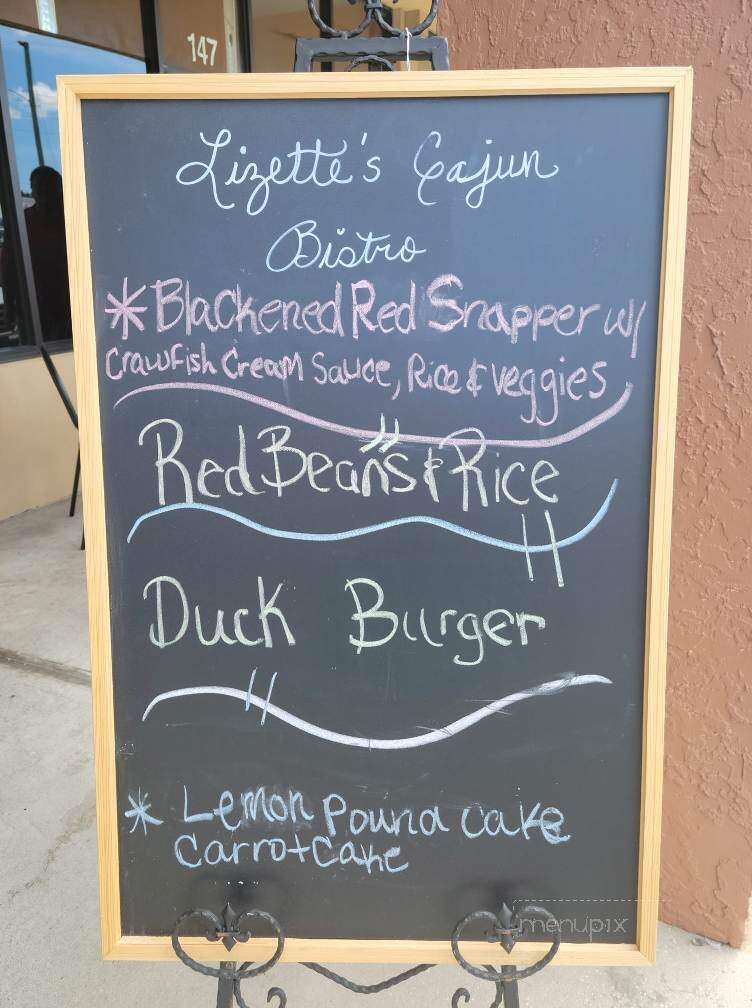 147
Lizette's Cajun
Bistro
*Blackened Red Snapper w/
Crawfish Cream Sauce, Rice & veggies
Red Beans & Rice
Duck Burger
* Lemon Pound cake
Carrot Cake
menupix